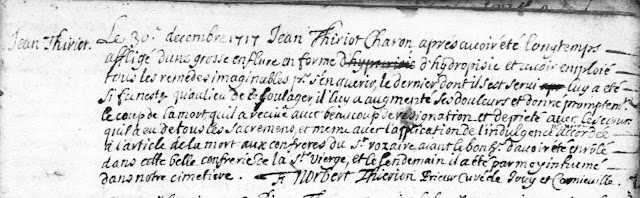 Jean Thiriot. Le 30e. decembre 1717 Jean Thiriot Charon, apres avoir été longtemps
affligé d'une grosse enflure en forme d'hypurisie d'hydropisie et avoir emploié
tous les remedes imaginables pr. s'en querir, le dernier dont il s'est servi luy a été
si funeste qu'au lieu de le soulager, il luy a augmenté ses douleurs et donné promptemt.
le coup de la mort qu'il a recüe avec beaucoup de resignation et de pieté avec le secours
qu'il a eu de tous les Sacremens, et meme avec l'application de l'indulgence accordée
a l'article de la mort aux confreres du St. rozaire, aiant le bonhr. d'avoir été enrôlé
dans cette belle confrerie de la Ste. vierge, et le lendemain il a été par moy inhumé
dans notre cimetiere. F. Norbert Thierion Prieur Curé de Jouy et Cornieville.